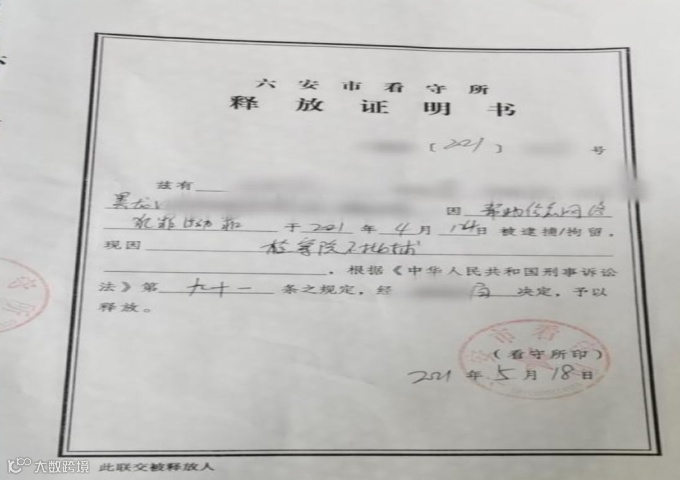 六安市看守所
释放证明书
〔2021〕 号
兹有
黑龙江 因 帮助信息网络
犯罪活动罪 于 2021 年 4 月 14 日被逮捕/拘留,
现因 检察院不批捕
,根据《中华人民共和国刑事诉讼
法》第 九十一 条之规定,经 局 决定,予以
释放。
(看守所印)
2021 年 5 月 18 日
此联交被释放人
大数跨境